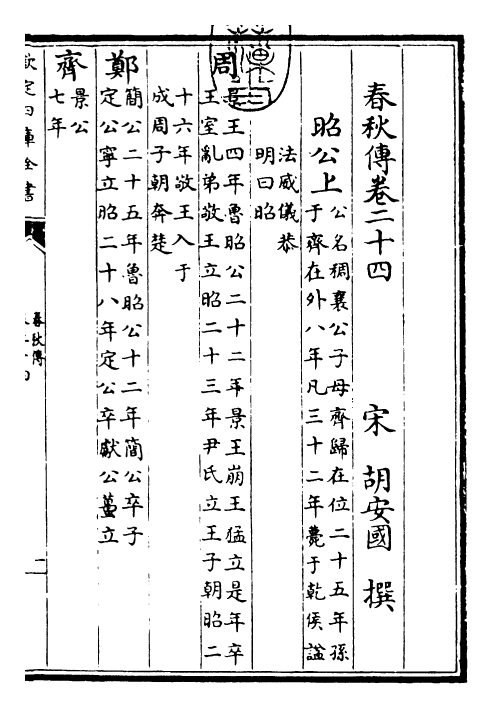 春秋傳卷二十四
宋 胡安國 撰
昭公上
公名稠襄公子母齊歸在位二十五年孫
于齊在外八年凡三十二年薨于乾侯諡
法威儀恭
明曰昭
周
景王四年魯昭公二十二年景王崩王猛立是年卒
王室亂弟敬王立昭二十三年尹氏立王子朝昭二
十六年敬王入于
成周子朝奔楚
鄭
簡公二十五年魯昭公十二年簡公卒子
定公寧立昭二十八年定公卒獻公蠆立
齊
景公
七年
欽定四庫全書
春秋傳